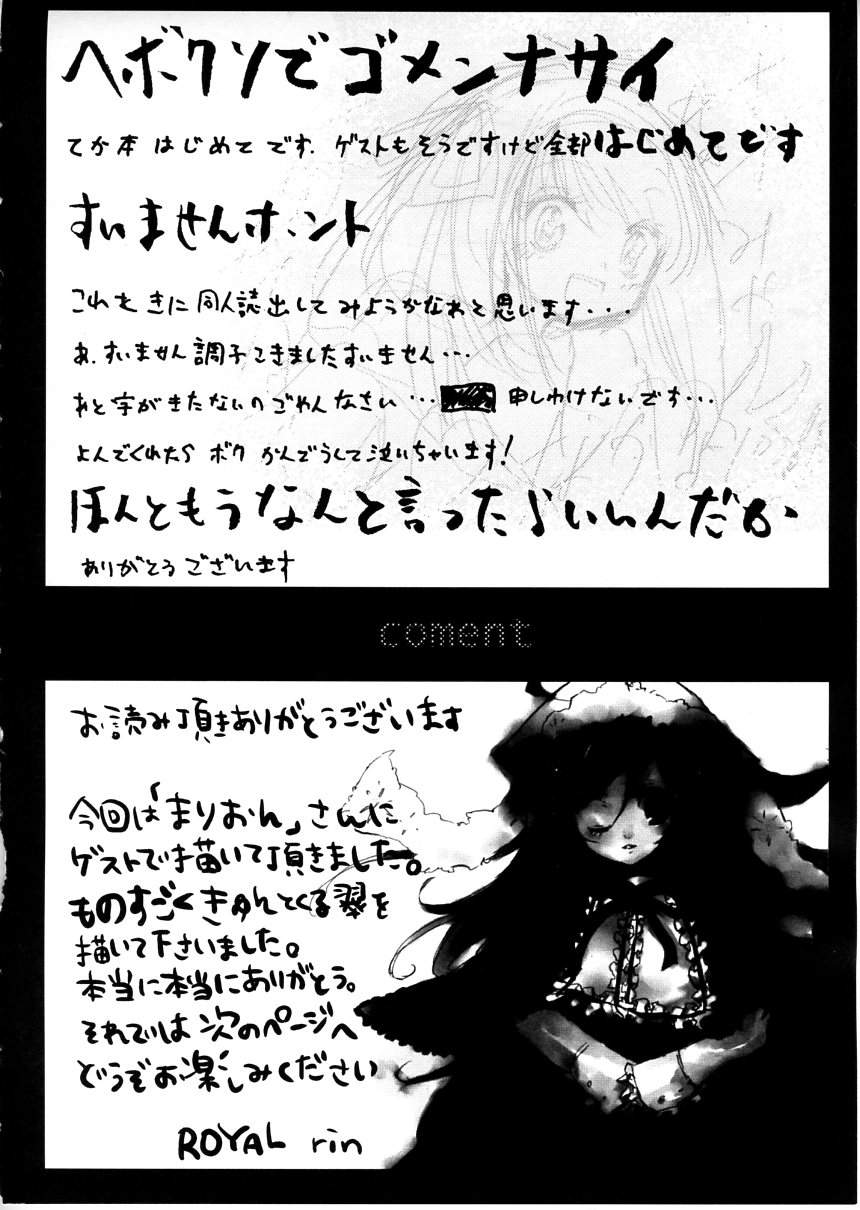 ヘボクソでゴメンナサイ
てか本 はじめて です. ゲストもそうですけど全部はじめてです
すいませんホント
これを きに 同人誌出して みようかなぁと 思います・・・
あ.すいません 調子こきましたすいません・・・
あと字がきたないのごめんなさい・・・ 申しわけないです・・・
よんでくれたら ボク かんどうして泣いちゃいます!
ほんともうなんと言ったらいいんだか
ありがとうございます
coment
お読み頂きありがとうございます
今回は「まりおん」さんに
ゲストで描いて頂きました。
ものすごくきゅんとくる翠を
描いて下さいました。
本当に本当にありがとう。
それでは次のページへ
どうぞお楽しみください
ROYAL rin